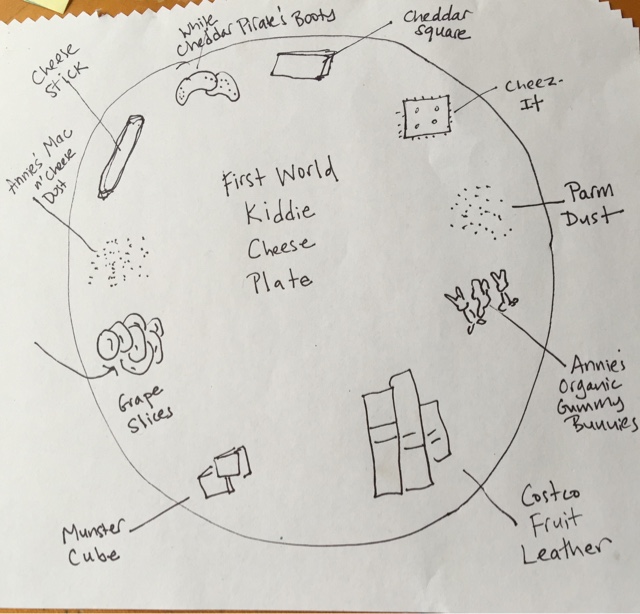 White
Cheddar Pirate's Booty
Cheddar
Square
Cheese
Stick
Cheez-
It
Annie's Mac
n' Cheese
Dust
First World
Kiddie
Cheese
Plate
Parm
Dust
Annie's
Organic
Gummy
Bunnies
Grape
Slices
Costco
Fruit
Leather
Munster
Cube